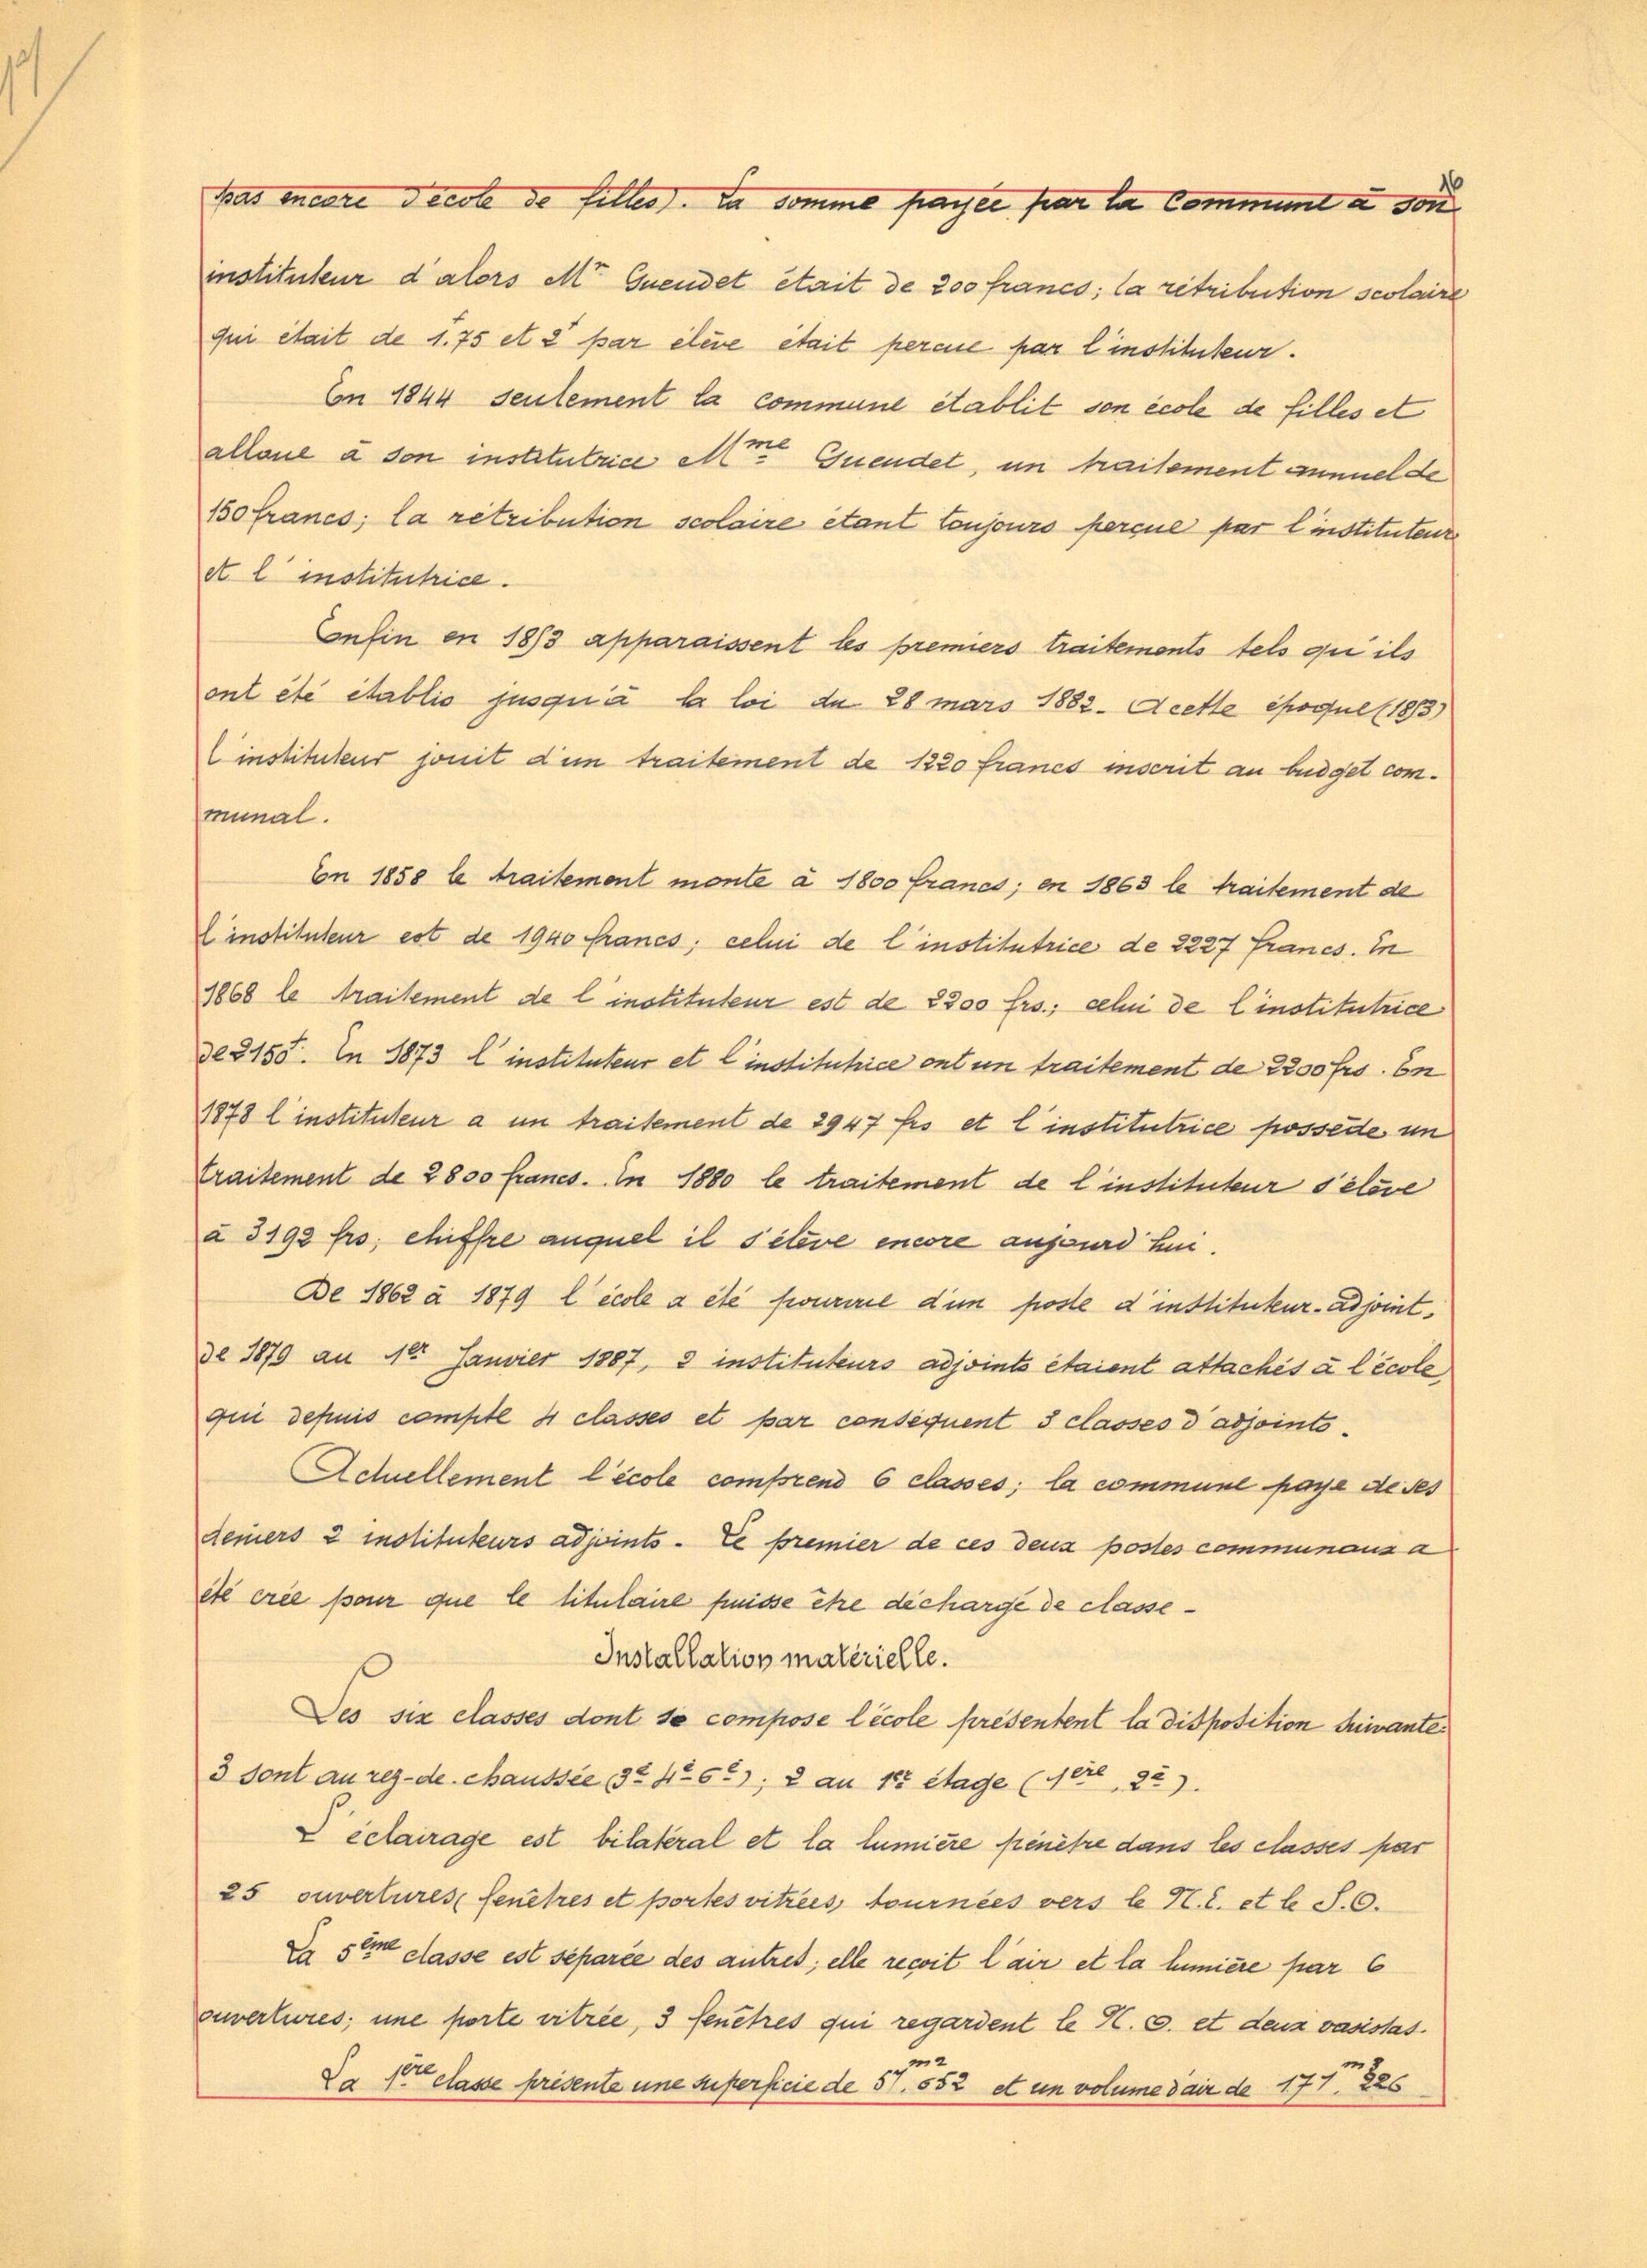 16
pas encore d'école de filles). La somme payée par la Commune à son
instituteur d'alors Mr Guendet était de 200 francs; la rétribution scolaire
qui était de 1.75 et 2f par élève était percue par l'instituteur.
En 1844 seulement la commune établit son école de filles et
alloue à son institutrice Mme Guendet, un traitement annuel de
150 francs; la rétribution scolaire étant toujours perçue par l'instituteur
et l'institutrice.
Enfin en 1853 apparaissent les premiers traitements tels qu'ils
ont été établis jusqu'à la loi du 28 mars 1882. A cette époque (1853)
l'instituteur jouit d'un traitement de 1220 francs inscrit au budget com-
munal.
En 1858 le traitement monte à 1800 francs; en 1863 le traitement de
l'instituteur est de 1940 francs; celui de l'institutrice de 2227 francs. En
1868 le traitement de l'instituteur est de 2200 frs.; celui de l'institutrice
de 2155f. En 1873 l'instituteur et l'institutrice ont un traitement de 2200 frs. En
1878 l'instituteur a un traitement de 2947 frs et l'institutrice possède un
traitement de 2800 francs. En 1880 le traitement de l'instituteur s'élève
à 3192 frs, chiffre auquel il s'élève encore aujourd'hui.
De 1862 à 1879 l'école a été pourvue d'un poste d'instituteur-adjoint,
de 1879 au 1er Janvier 1887, 2 instituteurs adjoints étaient attachés à l'école
qui depuis compte 4 classes et par conséquent 3 classes d'adjoints.
Actuellement l'école comprend 6 classes; la commune paye de ses
deniers 2 instituteurs adjoints. Le premier de ces deux postes communaux a
été créé pour que le titulaire puisse être déchargé de classe-
Installation matérielle.
Les six classes dont se compose l'école présentent la disposition suivante:
3 sont au rez-de-chaussée (3e 4e 6e); 2 au 1er étage (1ère, 2e).
L'éclairage est bilatéral et la lumière pénètre dans les classes par
25 ouvertures (fenêtres et portes vitrées) tournées vers le N.E. et le S.O.
La 5ème classe est séparée des autres; elle reçoit l'air et la lumière par 6
ouvertures; une porte vitrée, 3 fenêtres qui regardent le N.O. et deux vasistas.
La 1ère classe présente une superficie de 57m2.552 et un volume d'air de 171m3.226